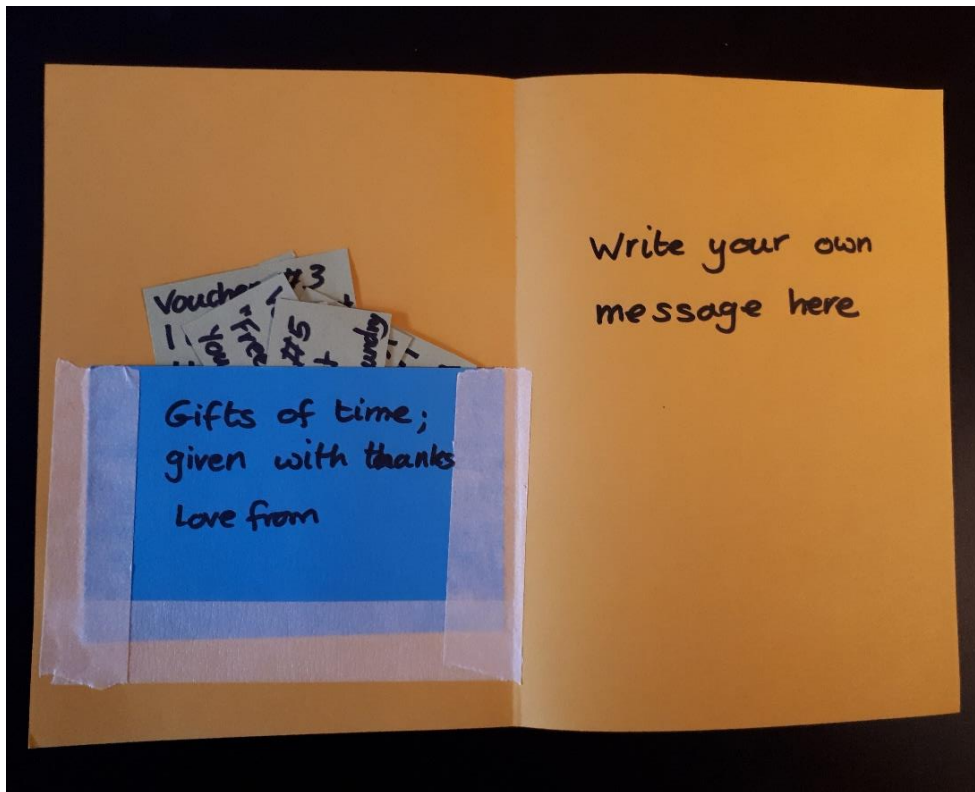 Voucher #3
#5
Gifts of time;
given with thanks
Love from
Write your own
message here